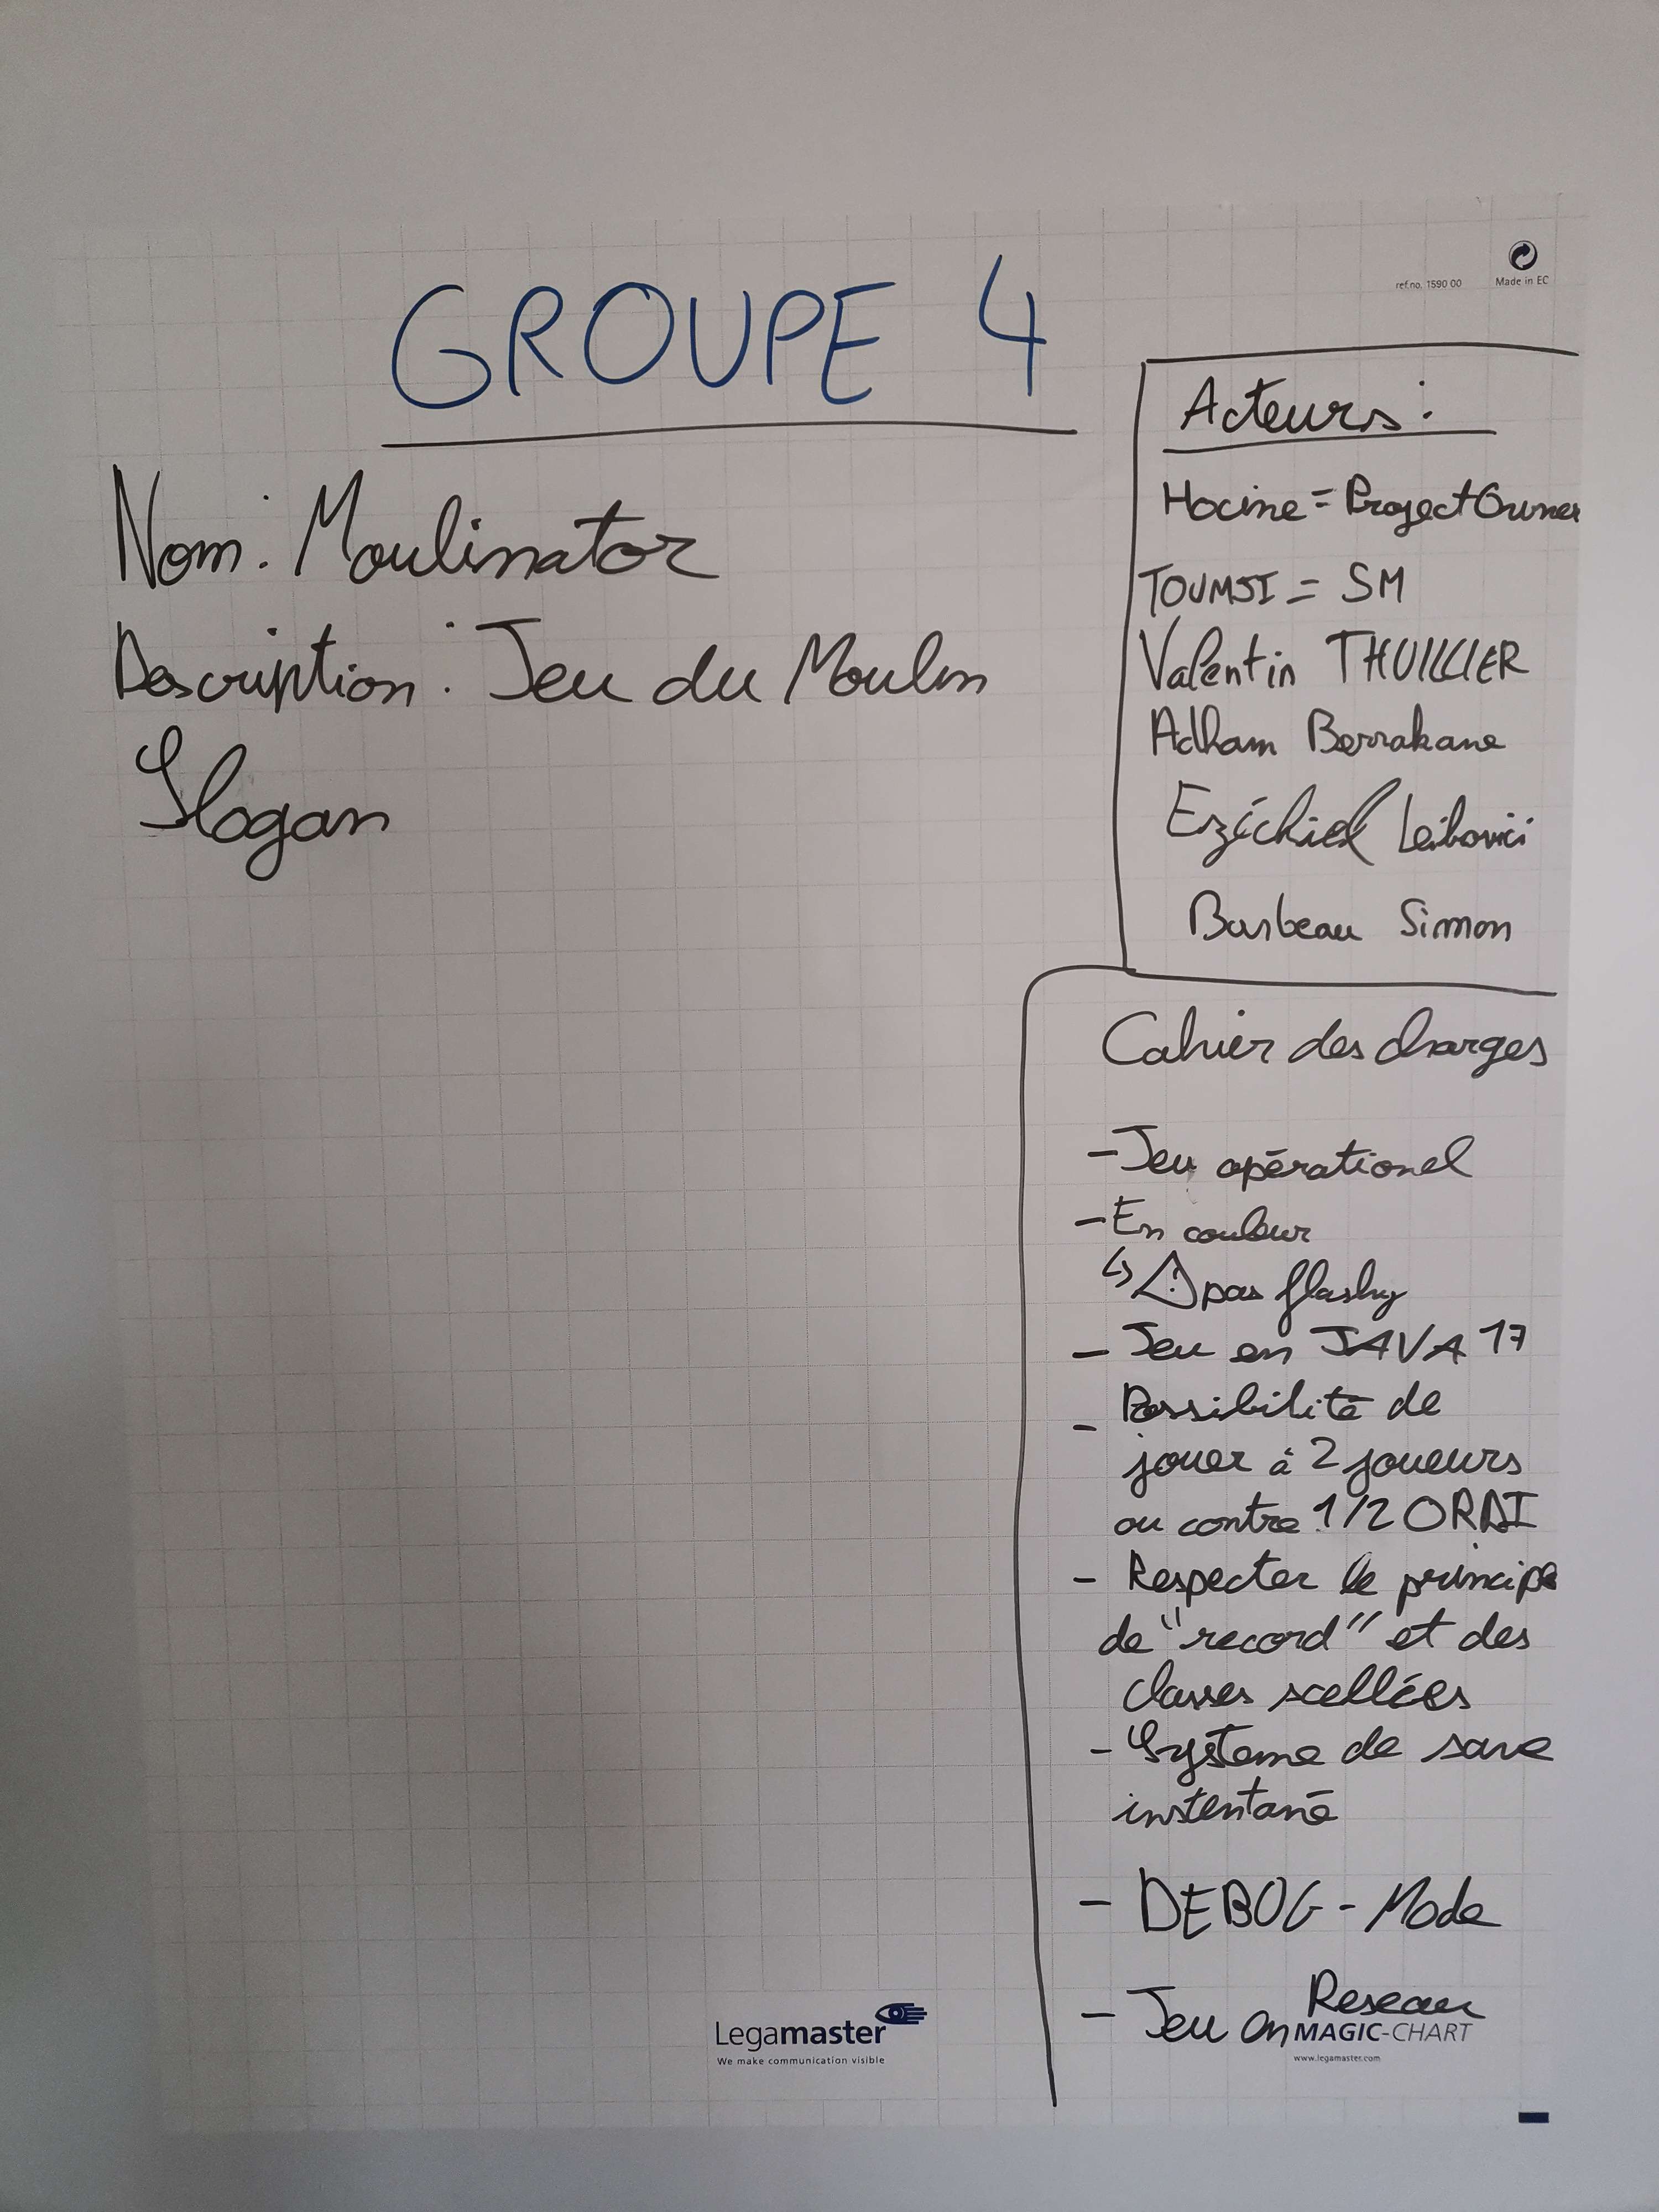 GROUPE 4
ref.no. 1590 00
Made in EC
Nom : Moulinator
Description : Jeu du Moulin
Slogan
Acteurs :
Hocine = Project Owner
TOUMSI = SM
Valentin THUILLIER
Adham Berrakane
Ezéchiel Leibovici
Barbeau Simon
Cahier des charges
- Jeu opérationel
- En couleur
↳ ⚠ pas flashy
- Jeu en JAVA 17
- Possibilité de
jouer à 2 joueurs
ou contre 1/2 ORDI
- Respecter le principe
de "record" et des
classes scellées
- Système de save
instentané
- DEBUG - Mode
- Jeu en Reseau
Legamaster
We make communication visible
MAGIC-CHART
www.legamaster.com